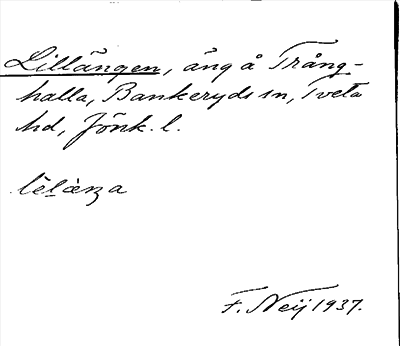 Lillängen, äng å Trång-
halla, Bankeryds sn, Tveta
hd, Jönk. l.
F. Neij 1937.